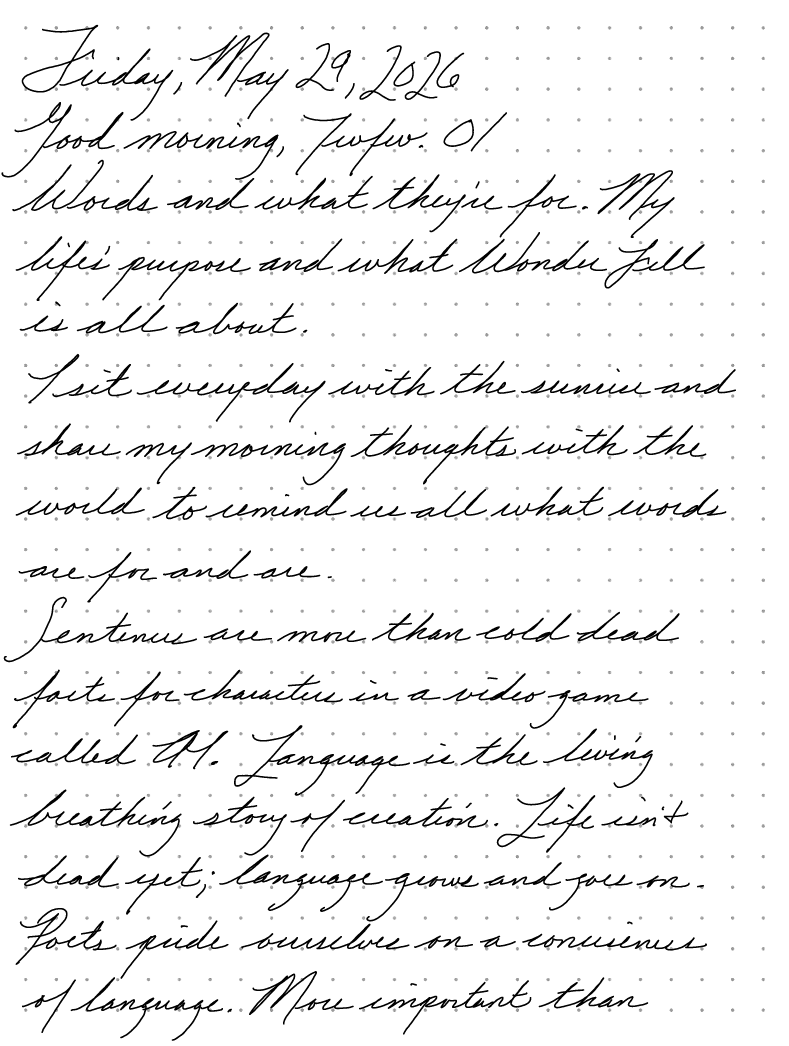 Friday, May 29, 2026
Good morning, Twfw. 01
Words and what they're for. My
life's purpose and what Wonder Full
is all about.
I sit everyday with the sunrise and
share my morning thoughts with the
world to remind us all what words
are for and are.
Sentences are more than cold dead
facts for characters in a video game
called AI. Language is the living
breathing story of creation. Life isn't
dead yet; language grows and goes on.
Poets pride ourselves on a conciseness
of language. More important than